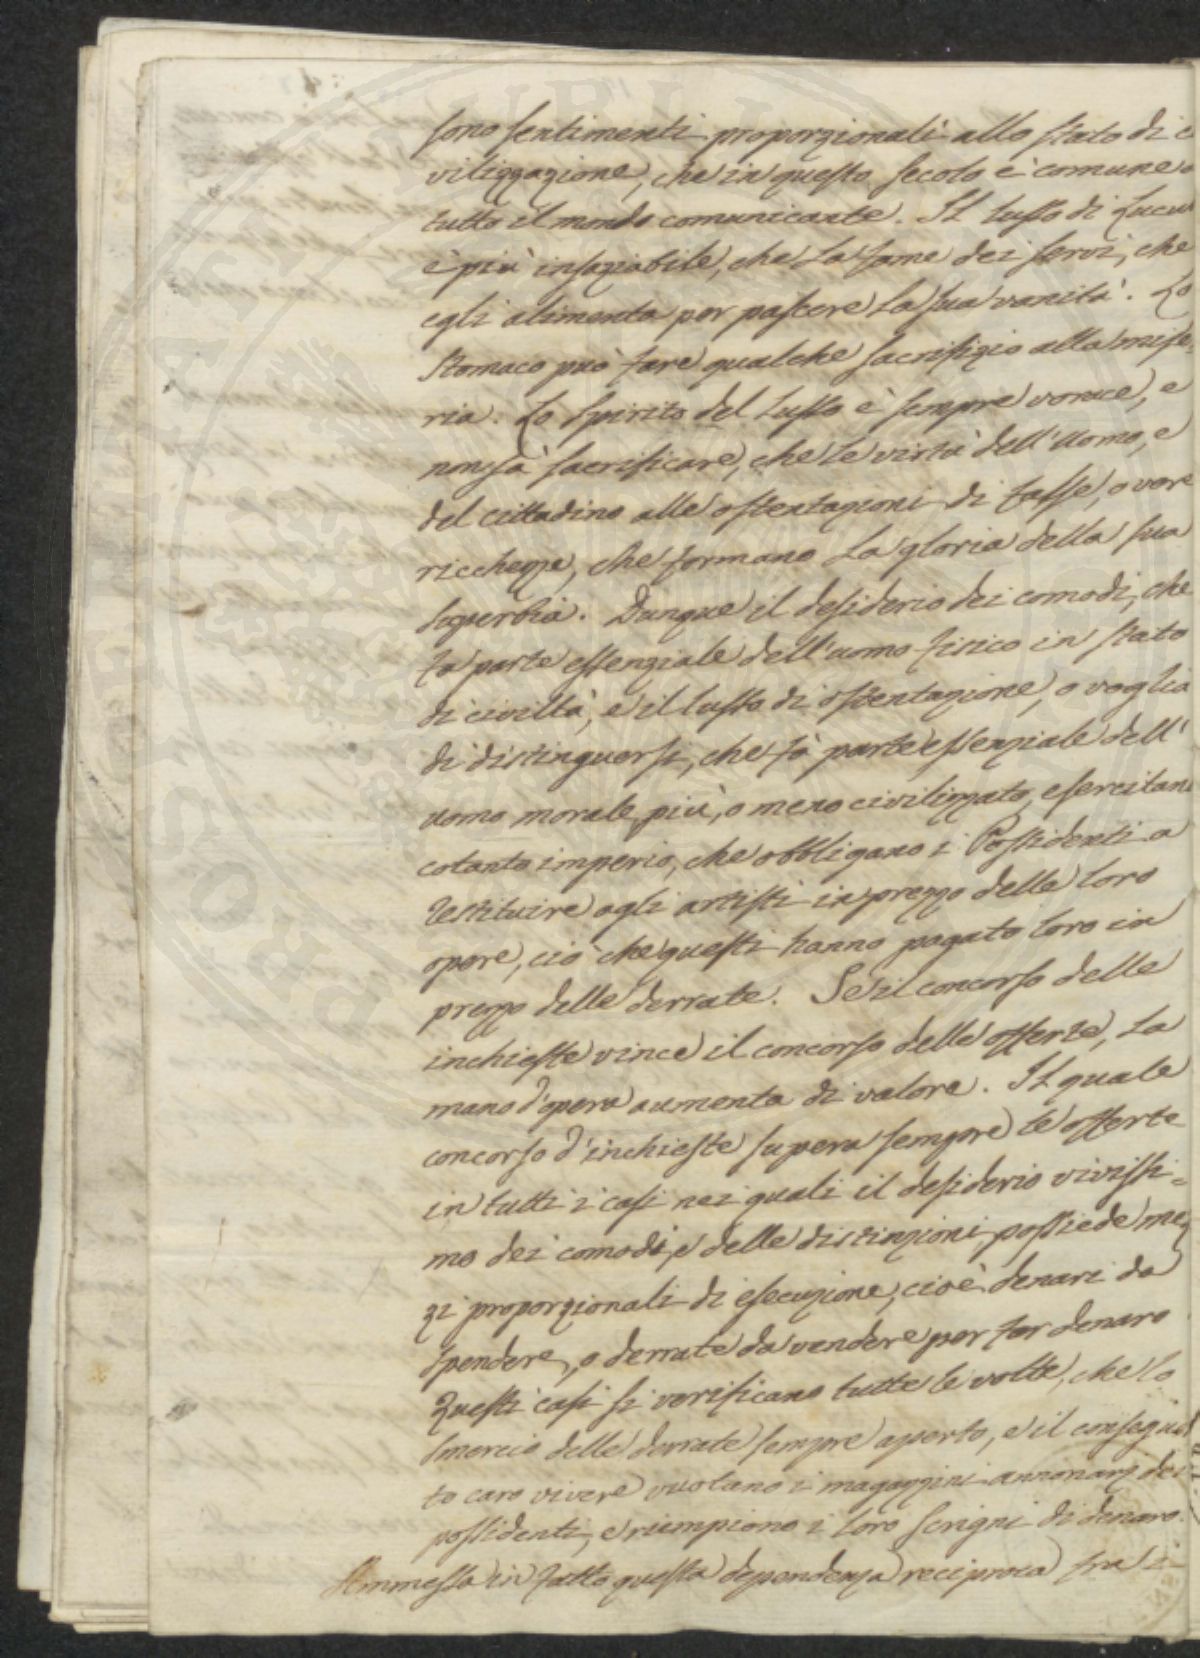 sono sentimenti proporzionali allo stato di c
vilizzazione, che in questo secolo è comune a
tutto il mondo comunicante. Il lusso di Lucul
è più insaziabile, che la fame dei servi, che
egli alimenta per pascere la sua vanità. Lo
stomaco può fare qualche sacrifizio alla mise,
ria. Lo spirito del lusso è sempre vorace, e
non sà sacrificare, che le virtù dell'uomo, e
del cittadino alle ostentazioni di false, o vere
ricchezze, che formano la gloria della sua
superbia. Dunque il desiderio dei comodi, che
fa parte essenziale dell'uomo fisico in stato
di civiltà, e il lusso di ostentazione, o voglia
di distinguersi, che fà parte essenziale dell'
uomo morale più, o meno civilizzato, esercitano
cotanto imperio, che obbligano i Possidenti a
restituire agli artisti in prezzo delle loro
opere, ciò che questi hanno pagato loro in
prezzo delle derrate. Se il concorso delle
inchieste vince il concorso delle offerte, la
mano d'opera aumenta di valore. Il quale
concorso d'inchieste supera sempre le offerte
in tutti i casi nei quali il desiderio vivissi=
mo dei comodi, e delle distinzioni, possiede mez
zi proporzionali di esecuzione, cioè denari da
spendere, o derrate da vendere per far denaro
Questi casi si verificano tutte le volte, che lo
smercio delle derrate sempre aperto, e il consegui
to caro vivere vuotano i magazzini annonarj dei
possidenti, e riempiono i loro scrigni di denaro.
Ammessa in fatto questa dependenza reciproca fra i